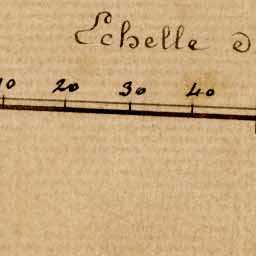 Echelle d
10 20 30 40